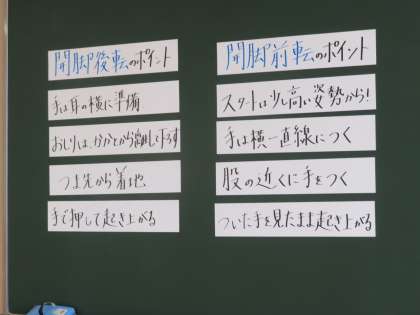 開脚後転のポイント
手は耳の横に準備
おしりは、かかとから離して下ろす
つま先から着地
手で押して起き上がる
開脚前転のポイント
スタートは少し高い姿勢から!
手は横一直線につく
股の近くに手をつく
ついた手を見たまま起き上がる